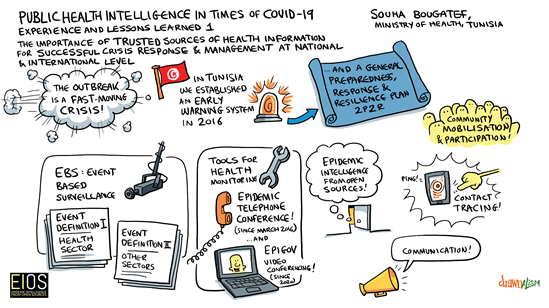 PUBLIC HEALTH INTELLIGENCE IN TIMES OF COVID-19
EXPERIENCE AND LESSONS LEARNED 1
THE IMPORTANCE OF TRUSTED SOURCES OF HEALTH INFORMATION
FOR SUCCESSFUL CRISIS RESPONSE & MANAGEMENT AT NATIONAL
& INTERNATIONAL LEVEL
SOUHA BOUGATEF,
MINISTRY OF HEALTH, TUNISIA
THE OUTBREAK
IS A FAST-MOVING
CRISIS!
IN TUNISIA
WE ESTABLISHED
AN EARLY
WARNING SYSTEM
IN 2016
...AND A GENERAL
PREPAREDNESS,
RESPONSE &
RESILIENCE PLAN
2P2R
COMMUNITY
MOBILISATION
& PARTICIPATION!
EBS: EVENT
BASED
SURVEILLANCE
EVENT
DEFINITION I
HEALTH
SECTOR
EVENT
DEFINITION II
OTHER
SECTORS
TOOLS FOR
HEALTH
MONITORING
EPIDEMIC
TELEPHONE
CONFERENCE!
(SINCE MARCH 2016)
...AND
EPIGOV
VIDEO
CONFERENCING!
(SINCE
2020)
EPIDEMIC
INTELLIGENCE
FROM OPEN
SOURCES!
PING!
CONTACT
TRACING!
COMMUNICATION!
EIOS
drawnalism